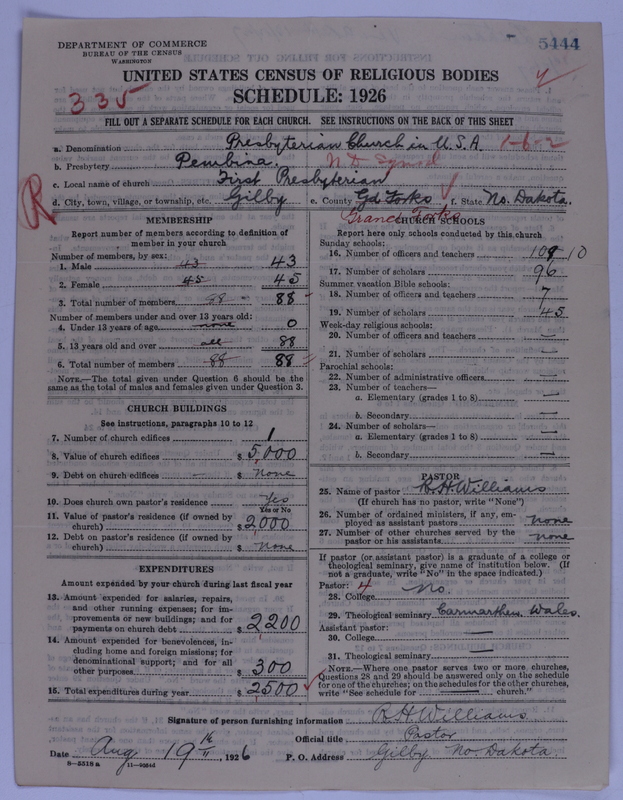 DEPARTMENT OF COMMERCE
BUREAU OF THE CENSUS
WASHINGTON
5444
UNITED STATES CENSUS OF RELIGIOUS BODIES
335
SCHEDULE: 1926
FILL OUT A SEPARATE SCHEDULE FOR EACH CHURCH. SEE INSTRUCTIONS ON THE BACK OF THIS SHEET
a. Denomination Presbyterian Church in U.S.A. 1-6-2
b. Presbytery Pembina. N D Synod
c. Local name of church First Presbyterian
d. City, town, village, or township, etc. Gilby e. County Gd Forks f. State No. Dakota.
R
Grand Forks
MEMBERSHIP
Report number of members according to definition of member in your church
Number of members, by sex:
1. Male 43 43
2. Female 45 45
3. Total number of members 88 88
Number of members under and over 13 years old:
4. Under 13 years of age none 0
5. 13 years old and over all 88
6. Total number of members 88 88
NOTE.—The total given under Question 6 should be the same as the total of males and females given under Question 3.
CHURCH BUILDINGS
See instructions, paragraphs 10 to 12
7. Number of church edifices 1
8. Value of church edifices $ 5,000
9. Debt on church edifices $ None
10. Does church own pastor's residence Yes
Yes or No
11. Value of pastor's residence (if owned by church) $ 2,000
12. Debt on pastor's residence (if owned by church) $ None
EXPENDITURES
Amount expended by your church during last fiscal year
13. Amount expended for salaries, repairs, and other running expenses; for improvements or new buildings; and for payments on church debt $ 2200
14. Amount expended for benevolences, including home and foreign missions; for denominational support; and for all other purposes $ 300
15. Total expenditures during year $ 2500
CHURCH SCHOOLS
Report here only schools conducted by this church
Sunday schools:
16. Number of officers and teachers 10
17. Number of scholars 96
Summer vacation Bible schools:
18. Number of officers and teachers 7
19. Number of scholars 45
Week-day religious schools:
20. Number of officers and teachers —
21. Number of scholars —
Parochial schools:
22. Number of administrative officers —
23. Number of teachers—
a. Elementary (grades 1 to 8) —
b. Secondary —
24. Number of scholars—
a. Elementary (grades 1 to 8) —
b. Secondary —
PASTOR
25. Name of pastor R.H. Williams
(If church has no pastor, write "None")
26. Number of ordained ministers, if any, employed as assistant pastors none
27. Number of other churches served by the pastor or his assistants none
If pastor (or assistant pastor) is a graduate of a college or theological seminary, give name of institution below. (If not a graduate, write "No" in the space indicated.)
Pastor: 4
28. College No.
29. Theological seminary Carmarthen, Wales.
Assistant pastor:
30. College —
31. Theological seminary —
NOTE.—Where one pastor serves two or more churches, Questions 28 and 29 should be answered only on the schedule for one of the churches; on the schedules for the other churches, write "See schedule for — church."
Signature of person furnishing information R.H. Williams
Official title Pastor
Date Aug 19 1926 P. O. Address Gilby No. Dakota.
8—5518 a